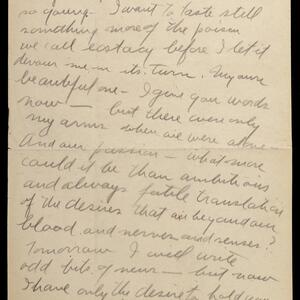 so young - I want to taste still
something more of the poison
we call ecstacy before I let it
devour me in its turn. My own
beautiful one - I give you words
now - but there were only
my arms when we were alone -
And our passion - what more
could it be than ambitious
and always futile translation
of the desires that are beyond our
blood and nerves and senses?
Tomorrow I will write
odd bits of news - but now
I have only the desire to hold you